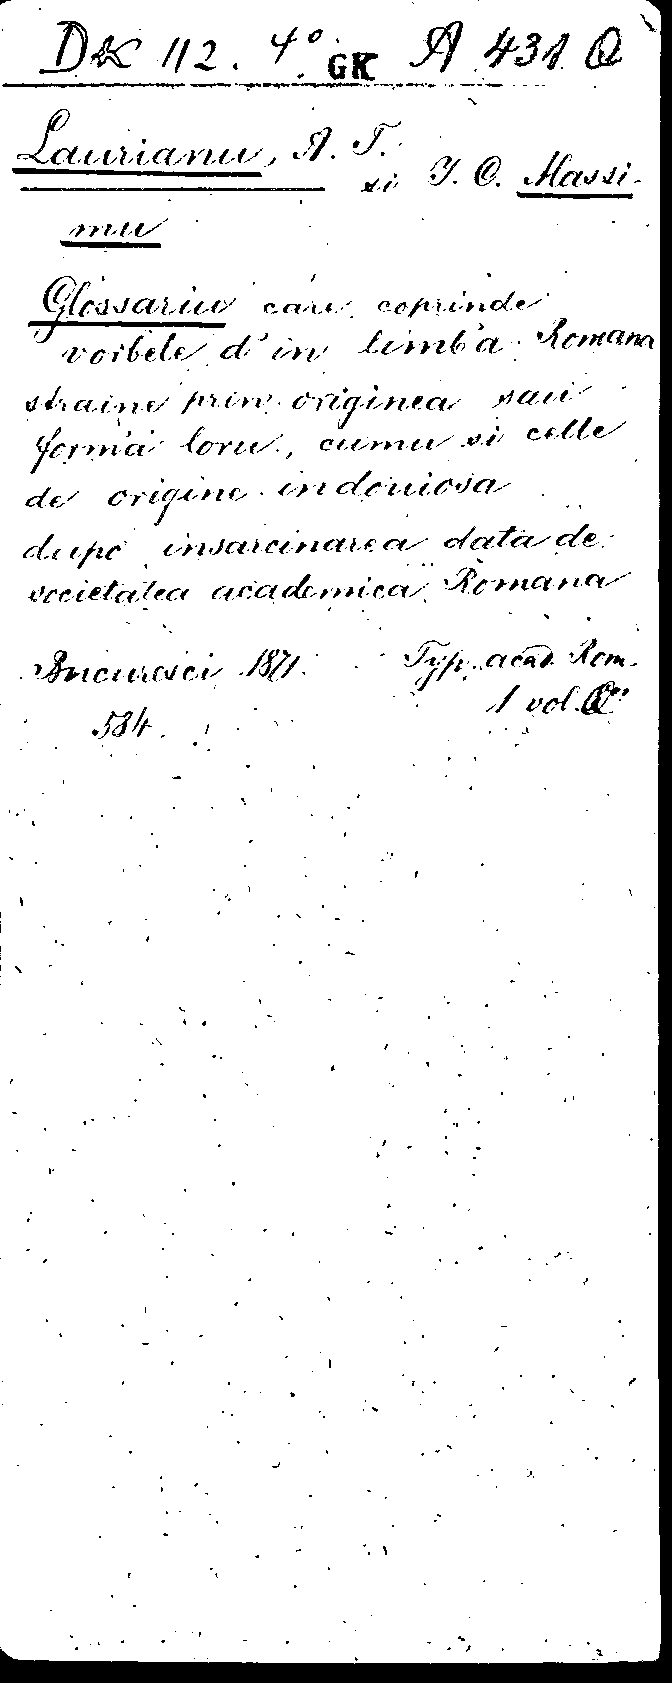 Dk 112. 4º GK A 431 Q
Laurianu, A. T.
si I. C. Massi-
mu
Glossariu care coprinde
vorbele d'in limb'a Romana
straine prin originea sau
form'a loru, cumu si celle
de origine indouiosa
dupo insarcinarea data de
societatea academica Romana
Bucuresci 1871. Typ. acad. Rom.
584. 1 vol.